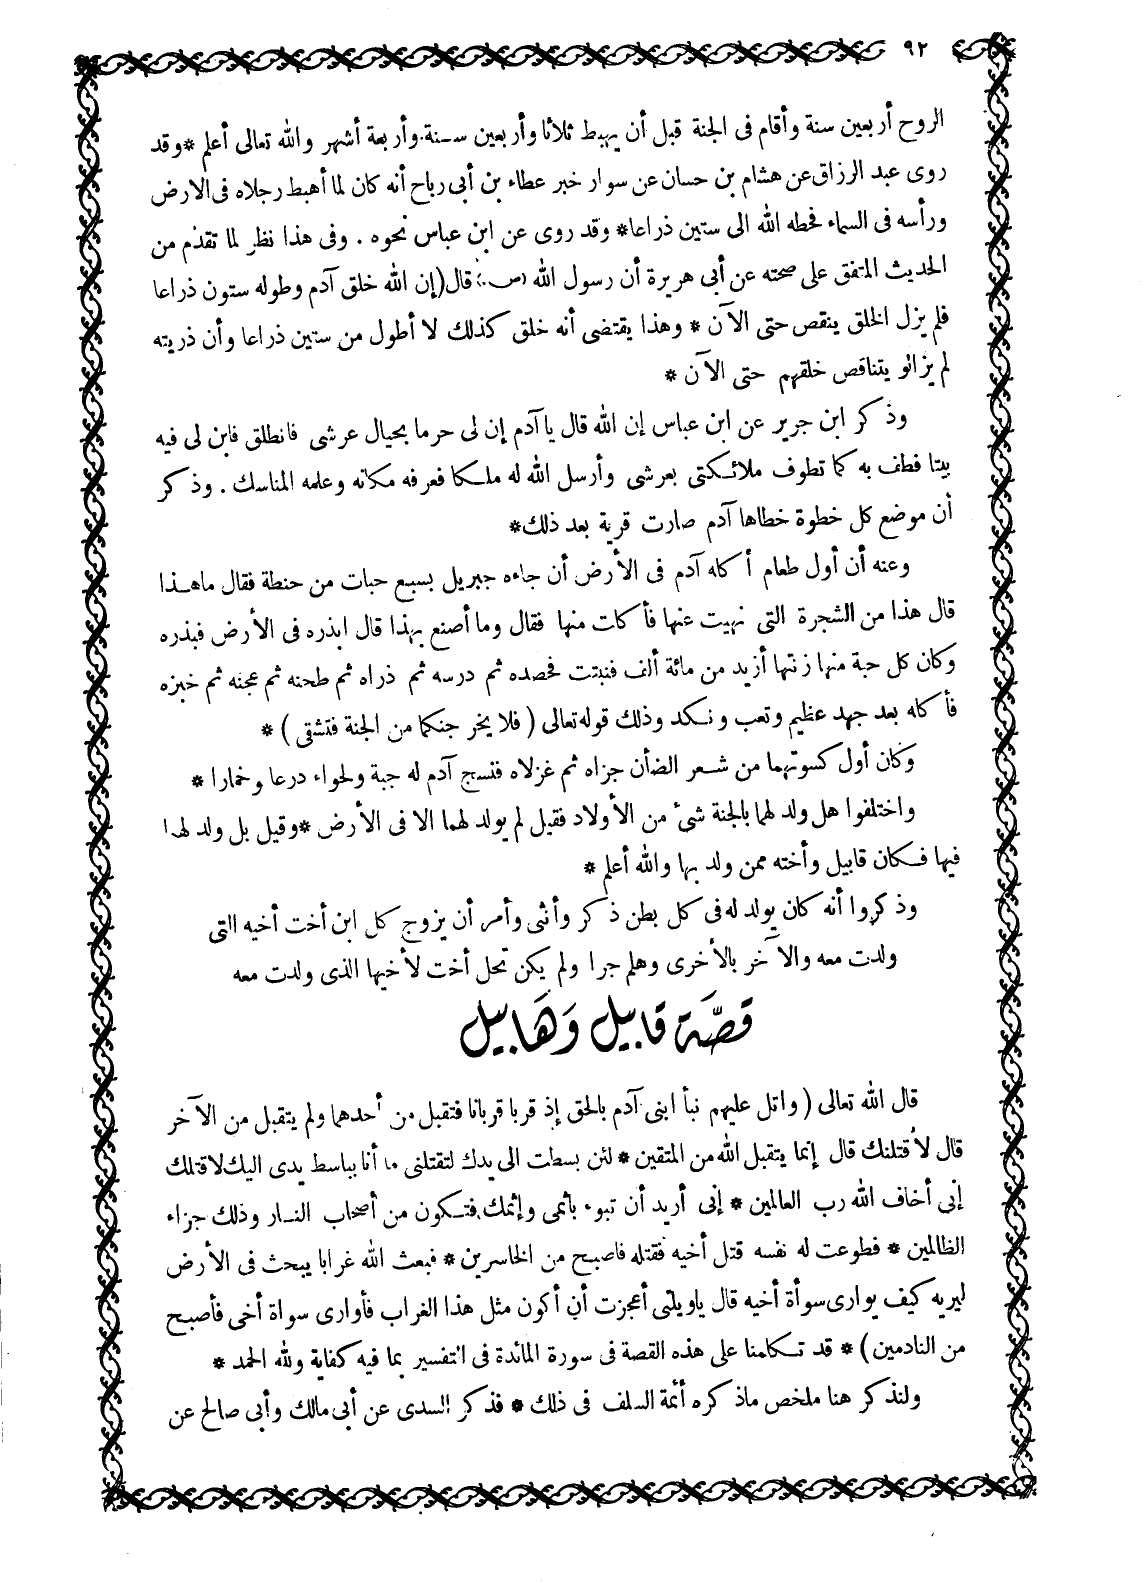 ٩٢
الروح أربعين سنة وأقام فى الجنة قبل أن يهبط ثلاثا وأربعين سـنة وأربعة أشهر والله تعالى أعلم *وقد
روى عبد الرزاق عن هشام بن حسان عن سوار خبر عطاء بن أبى رباح أنه كان لما أهبط رجلاه فى الارض
ورأسه فى السماء فحطه الله الى ستين ذراعا* وقد روى عن ابن عباس نحوه . وفى هذا نظر لما تقدم من
الحديث المتفق على صحته عن أبى هريرة أن رسول الله (ص.) قال (إن الله خلق آدم وطوله ستون ذراعا
فلم يزل الخلق ينقص حتى الآن * وهذا يقتضى أنه خلق كذلك لا أطول من ستين ذراعا وأن ذريته
لم يزالو يتناقص خلقهم حتى الآن *
وذكر ابن جرير عن ابن عباس إن الله قال يا آدم إن لى حرما بحيال عرشى فانطلق فابن لى فيه
بيتا فطف به كما تطوف ملائـكتى بعرشى وأرسل الله له ملـكا فعرفه مكانه وعلمه المناسك . وذكر
أن موضع كل خطوة خطاها آدم صارت قرية بعد ذلك*
وعنه أن أول طعام أكله آدم فى الأرض أن جاءه جبريل بسبع حبات من حنطة فقال ماهـذا
قال هذا من الشجرة التى نهيت عنها فأكلت منها فقال وما أصنع بهذا قال ابذره فى الأرض فبذره
وكان كل حبة منها زنتها أزيد من مائة ألف فنبتت فحصده ثم درسه ثم ذراه ثم طحنه ثم عجنه ثم خبزه
فأكله بعد جهد عظيم وتعب ونكد وذلك قوله تعالى ( فلا يخرجنكما من الجنة فتشقى ) *
وكان أول كسوتهما من شـعر الضأن جزاه ثم غزلاه فنسج آدم له جبة ولحواء درعا وخمارا *
واختلفوا هل ولد لهما بالجنة شئ من الأولاد فقيل لم يولد لهما الا فى الأرض *وقيل بل ولد لهما
فيها فـكان قابيل وأخته ممن ولد بها والله أعلم *
وذكروا أنه كان يولد له فى كل بطن ذكر وأنثى وأمر أن يزوج كل ابن أخت أخيه التى
ولدت معه والآخر بالأخرى وهلم جرا ولم يكن تحل أخت لأخيها الذى ولدت معه
قصّة قابيل وَهَابيل
قال الله تعالى ( واتل عليهم نبأ ابنى آدم بالحق إذ قربا قربانا فتقبل من أحدهما ولم يتقبل من الآخر
قال لأقتلنك قال إنما يتقبل الله من المتقين * لئن بسطت الى يدك لتقتلنى ما أنا بباسط يدى اليك لاقتلك
إنى أخاف الله رب العالمين * إنى أريد أن تبوء بأثمى وإثمك فتـكون من أصحاب النـار وذلك جزاء
الظالمين * فطوعت له نفسه قتل أخيه فقتله فاصبح من الخاسرين * فبعث الله غرابا يبحث فى الأرض
ليريه كيف يوارى سوأة أخيه قال ياويلتى أعجزت أن أكون مثل هذا الغراب فأوارى سواة أخى فأصبح
من النادمين ) * قد تـكلمنا على هذه القصة فى سورة المائدة فى التفسير بما فيه كفاية ولله الحمد *
ولنذكر هنا ملخص ماذكره أئمة السلف فى ذلك * فذكر السدى عن أبى مالك وأبى صالح عن